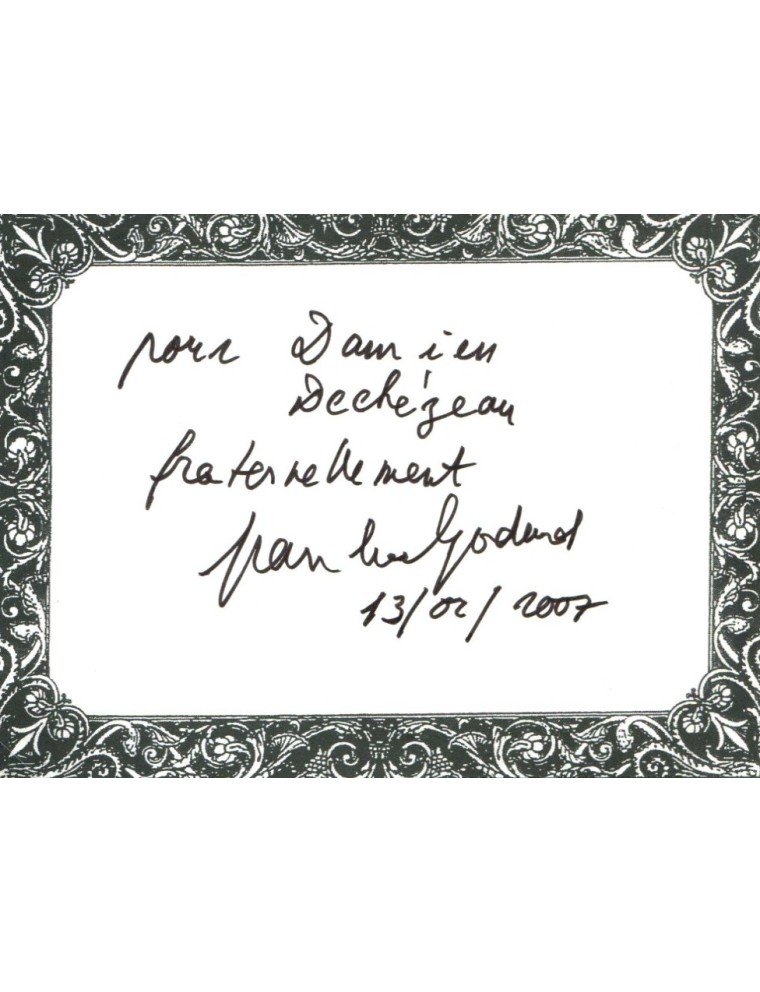 pour Damien
Dechézeau
fraternellement
Jean Luc Godard
13/02/2007